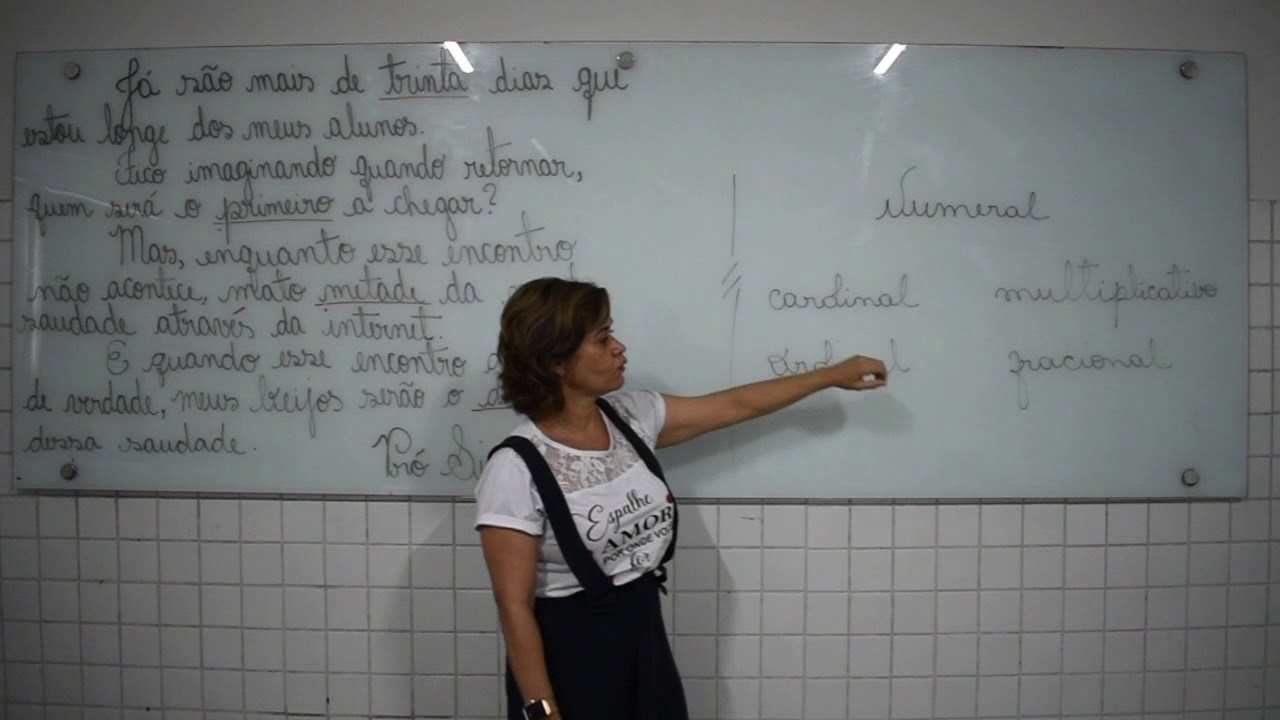 Já são mais de trinta dias que
estou longe dos meus alunos.
Fico imaginando quando retornar,
quem será o primeiro a chegar?
Mas, enquanto esse encontro
não acontece, mato metade da
saudade através da internet.
E quando esse encontro
de verdade, meus beijos serão o
dessa saudade.
Pró
Numeral
cardinal multiplicativo
ordinal fracional
Espalhe
AMOR
POR ONDE VOCÊ
for